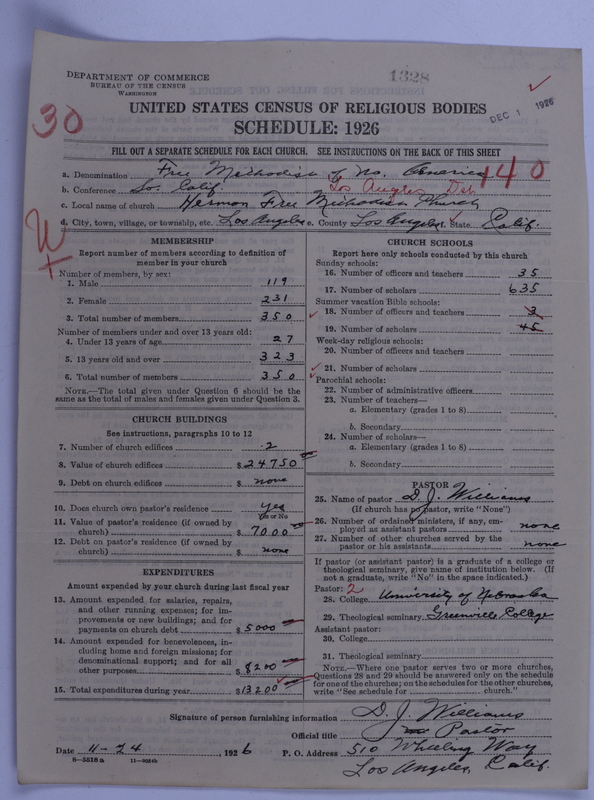 DEPARTMENT OF COMMERCE
BUREAU OF THE CENSUS
WASHINGTON
1328
DEC 1 1926
30
UNITED STATES CENSUS OF RELIGIOUS BODIES
SCHEDULE: 1926
FILL OUT A SEPARATE SCHEDULE FOR EACH CHURCH. SEE INSTRUCTIONS ON THE BACK OF THIS SHEET
a. Denomination Free Methodist of No. America 140
b. Conference So. Calif. Los Angeles Dist.
c. Local name of church Hermon Free Methodist Church
d. City, town, village, or township, etc. Los Angeles e. County Los Angeles f. State Calif.
MEMBERSHIP
Report number of members according to definition of
member in your church
Number of members, by sex:
1. Male 119
2. Female 231
3. Total number of members 350
Number of members under and over 13 years old:
4. Under 13 years of age 27
5. 13 years old and over 323
6. Total number of members 350
NOTE.—The total given under Question 6 should be the
same as the total of males and females given under Question 3.
CHURCH BUILDINGS
See instructions, paragraphs 10 to 12
7. Number of church edifices 2
8. Value of church edifices $24750
9. Debt on church edifices $ none
10. Does church own pastor's residence yes
Yes or No
11. Value of pastor's residence (if owned by
church) $7000
12. Debt on pastor's residence (if owned by
church) $ none
EXPENDITURES
Amount expended by your church during last fiscal year
13. Amount expended for salaries, repairs,
and other running expenses; for im-
provements or new buildings; and for
payments on church debt $5000
14. Amount expended for benevolences, in-
cluding home and foreign missions; for
denominational support; and for all
other purposes $8200
15. Total expenditures during year $13200
CHURCH SCHOOLS
Report here only schools conducted by this church
Sunday schools:
16. Number of officers and teachers 35
17. Number of scholars 635
Summer vacation Bible schools:
18. Number of officers and teachers 3
19. Number of scholars 45
Week-day religious schools:
20. Number of officers and teachers
21. Number of scholars
Parochial schools:
22. Number of administrative officers
23. Number of teachers—
a. Elementary (grades 1 to 8)
b. Secondary
24. Number of scholars—
a. Elementary (grades 1 to 8)
b. Secondary $
PASTOR
25. Name of pastor D. J. Williams
(If church has no pastor, write "None")
26. Number of ordained ministers, if any, em-
ployed as assistant pastors none
27. Number of other churches served by the
pastor or his assistants none
If pastor (or assistant pastor) is a graduate of a college or
theological seminary, give name of institution below. (If
not a graduate, write "No" in the space indicated.)
Pastor: 2
28. College University of Nebraska
29. Theological seminary Greenville College
Assistant pastor:
30. College
31. Theological seminary
NOTE.—Where one pastor serves two or more churches,
Questions 28 and 29 should be answered only on the schedule
for one of the churches; on the schedules for the other churches,
write "See schedule for church."
Signature of person furnishing information D. J. Williams
Official title Pastor
Date 11-24, 1926 P. O. Address 510 Wheeling Way
Los Angeles, Calif.